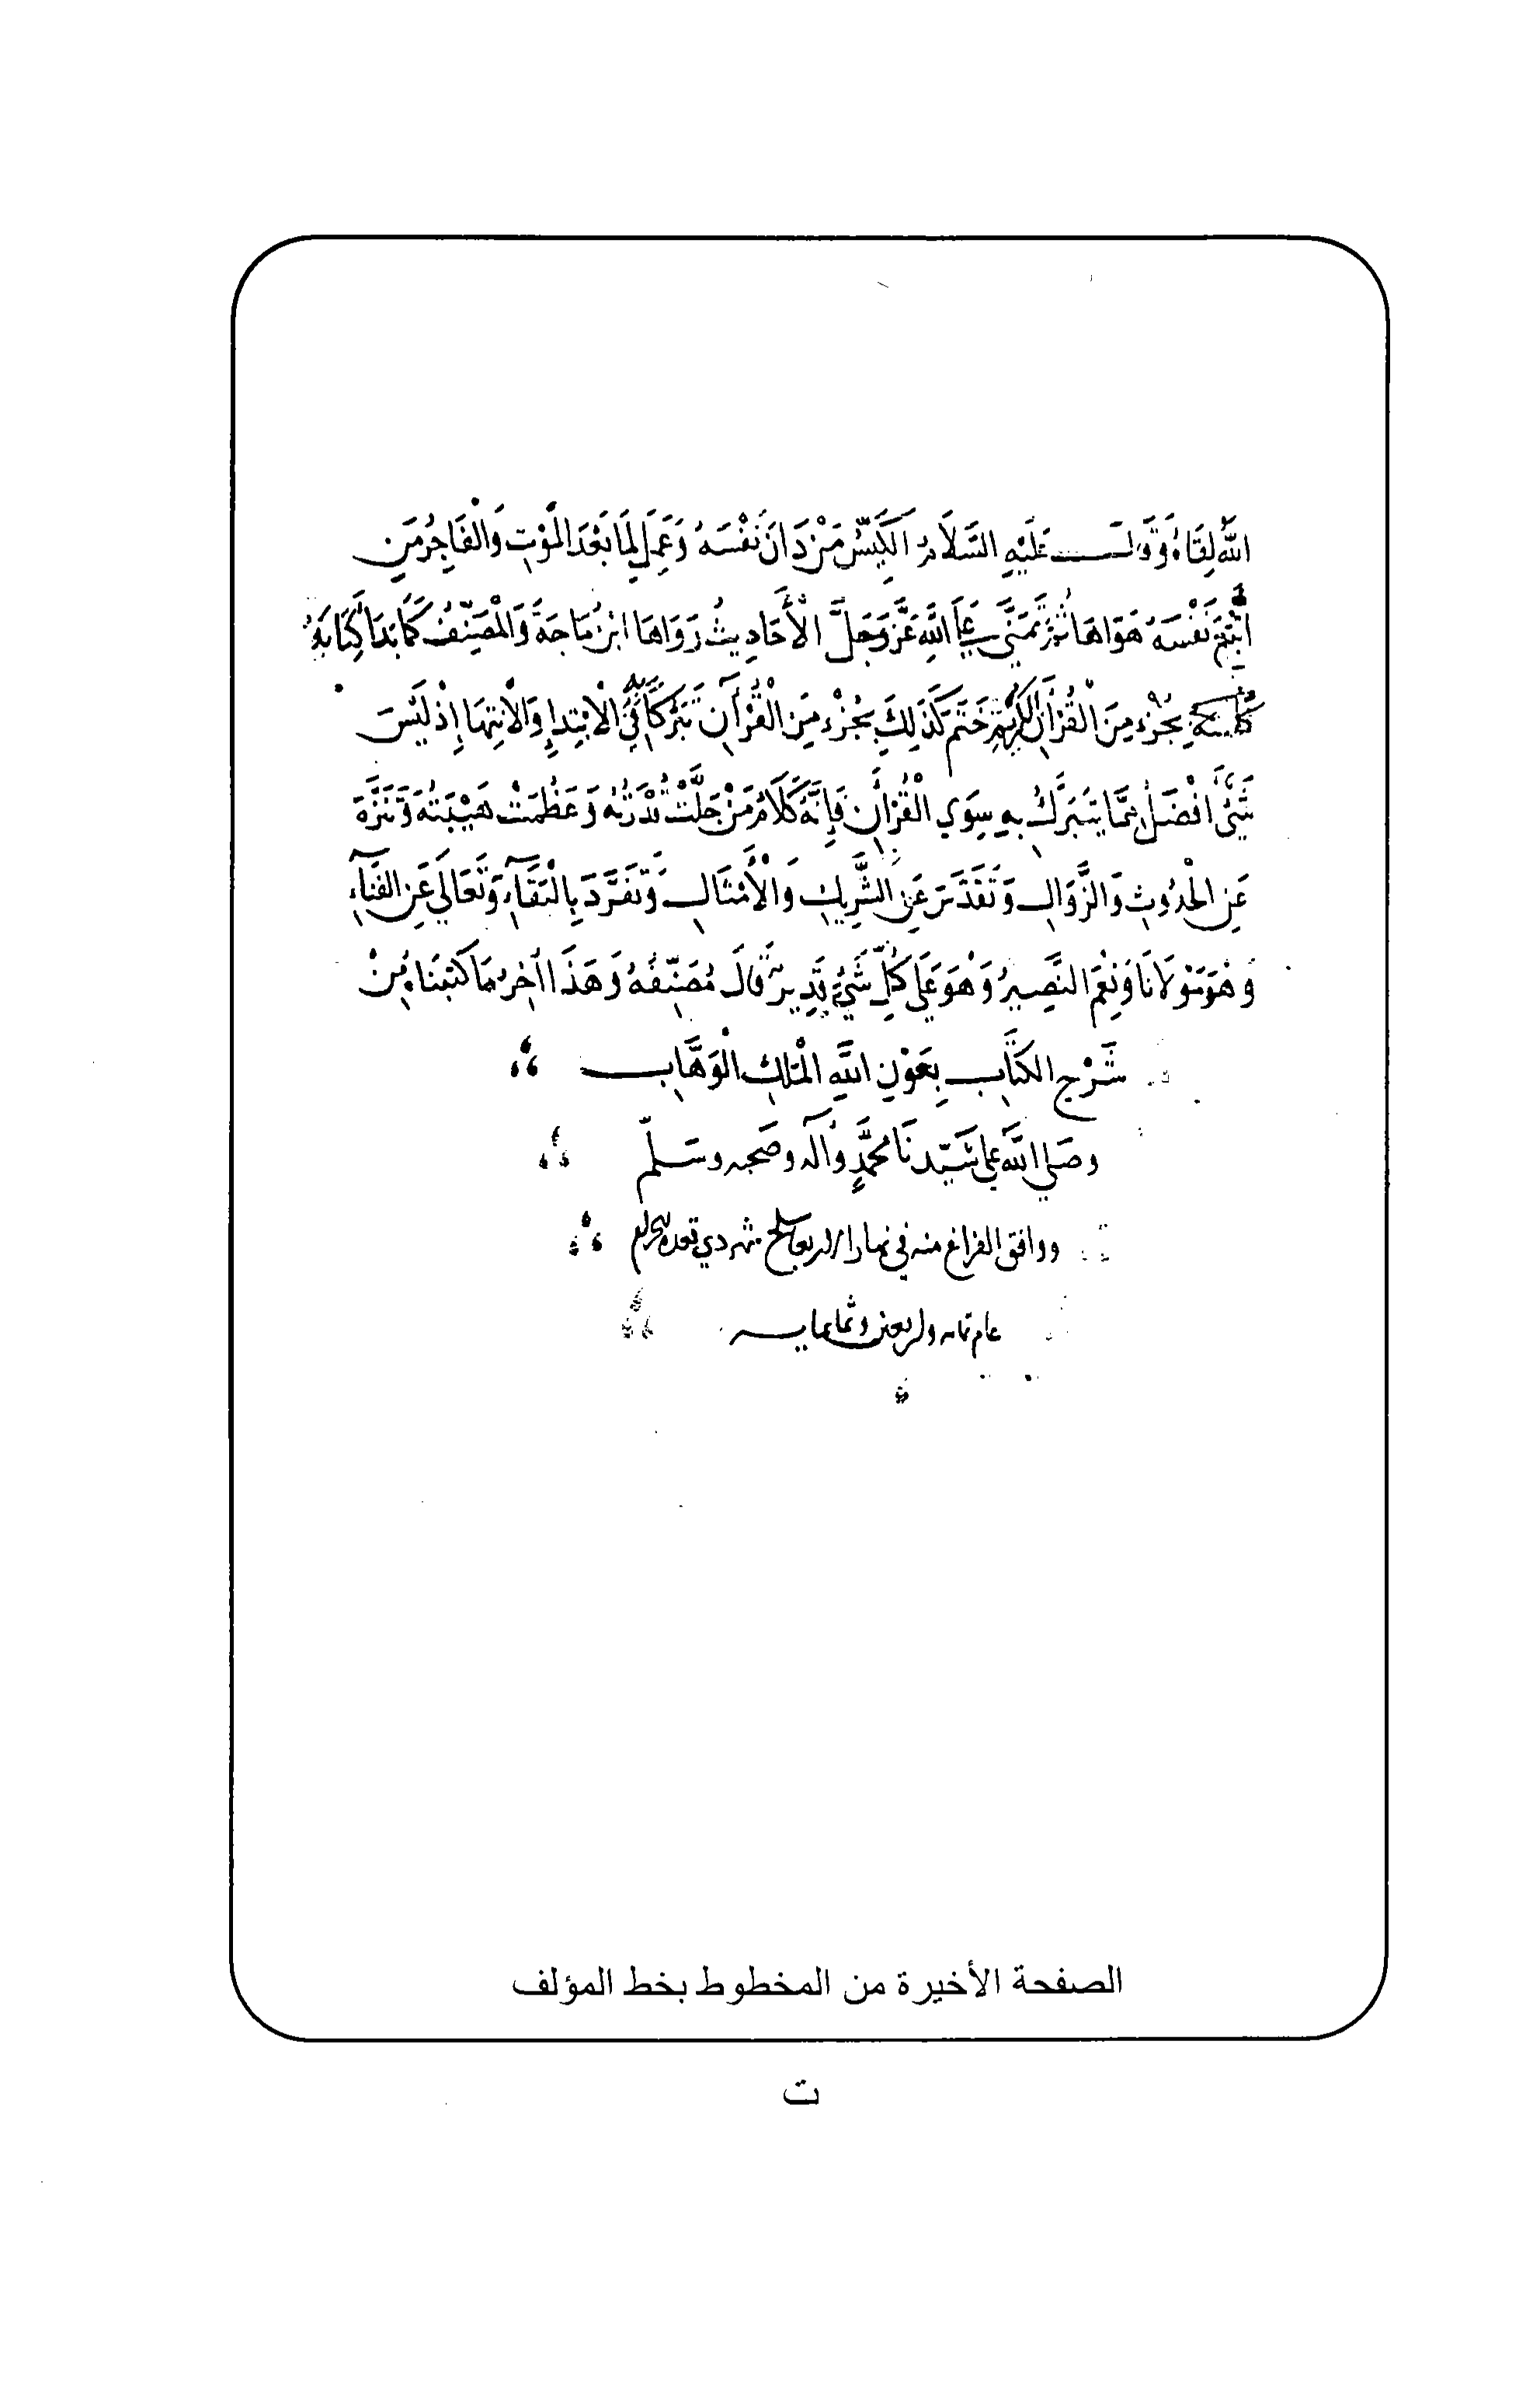 اللَّهُ لِقَاءَهُ وَقَالَ عَلَيْهِ السَّلَامُ الْكَيِّسُ مَنْ دَانَ نَفْسَهُ وَعَمِلَ لِمَا بَعْدَ الْمَوْتِ وَالْفَاجِرُ مَن
اتَّبَعَ نَفْسَهُ هَوَاهَا ثُمَّ تَمَنَّى عَلَى اللَّهِ عَزَّ وَجَلَّ الْأَحَادِيثُ رَوَاهَا ابْنُ مَاجَةَ وَالْمُصَنِّفُ كَمَا بَدَأَ كِتَابَهُ
بِجُزْءٍ مِنَ الْقُرْآنِ الكريم خَتَمَ كَذَلِكَ بِجُزْءٍ مِنَ الْقُرْآنِ تَبَرُّكًا بِهِ فِي الْابْتِدَاءِ وَالْانْتِهَا إِذْ لَيْسَ
شَيْئٌ افْضَلُ مِمَّا يَتَبَرَّكُ بِهِ سِوَي الْقُرْآنِ فَإِنَّهُ كَلَامُ مَنْ جَلَّتْ قُدْرَتُهُ وَعَظُمَتْ هَيْبَتُهُ وَتَنَزَّهَ
عَنِ الْحُدُوثِ وَالزَّوَالِ وَتَقَدَّسَ عَنِ الشَّرِيكِ وَالْأَمْثَالِ وَتَفَرَّدَ بِالْبَقَآءِ وَتَعَالَي عَنِ الفَنَآءِ
وَهُوَ مَوْلَانَا وَنِعْمَ النَّصِيرُ وَهْوَ عَلَى كُلِّ شَيْءٍ قَدِيرٌ قَالَ مُصَنِّفُهُ وَهَذَا اآخِرُ مَا كَتَبْنَاهُ مِنْ
شَرْحِ الكِتَابِ بِعَوْنِ اللَّهِ الْمَلِكِ الْوَهَّابِ
وصَلي اللَّه على سَيّدنَا مُحَمَّدٍ وآله وصَحبه وسَلّم
ووافق الفراغ منه في نهار الاربعا سلخ شهر دي قعده الحرام
عام ثمانيه واربعين وثمانمايه
الصفحة الأخيرة من المخطوط بخط المؤلف
ت